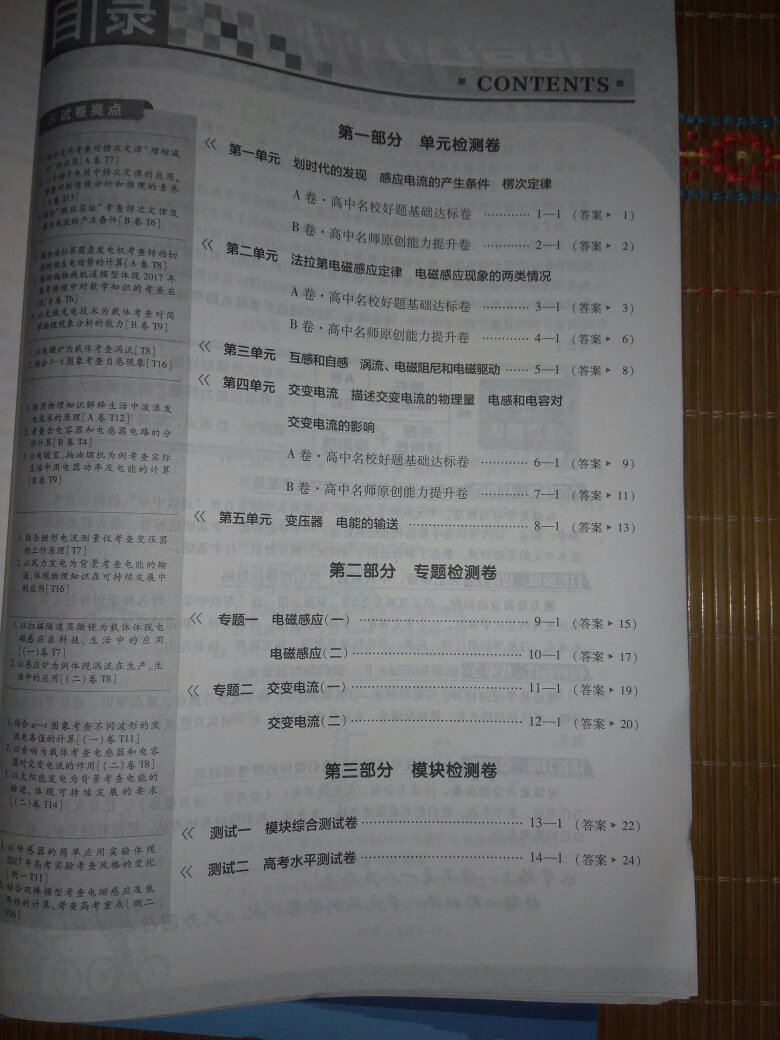 目录
CONTENTS
试卷亮点
第一部分 单元检测卷
第一单元 划时代的发现 感应电流的产生条件 楞次定律
A 卷·高中名校好题基础达标卷 ………… 1—1 (答案▶ 1)
B 卷·高中名师原创能力提升卷 ………… 2—1 (答案▶ 2)
第二单元 法拉第电磁感应定律 电磁感应现象的两类情况
A 卷·高中名校好题基础达标卷 ………… 3—1 (答案▶ 3)
B 卷·高中名师原创能力提升卷 ………… 4—1 (答案▶ 6)
第三单元 互感和自感 涡流、电磁阻尼和电磁驱动 …… 5—1 (答案▶ 8)
第四单元 交变电流 描述交变电流的物理量 电感和电容对
交变电流的影响
A 卷·高中名校好题基础达标卷 ………… 6—1 (答案▶ 9)
B 卷·高中名师原创能力提升卷 ………… 7—1 (答案▶ 11)
第五单元 变压器 电能的输送 ………… 8—1 (答案▶ 13)
第二部分 专题检测卷
专题一 电磁感应(一) ………… 9—1 (答案▶ 15)
电磁感应(二) ………… 10—1 (答案▶ 17)
专题二 交变电流(一) ………… 11—1 (答案▶ 19)
交变电流(二) ………… 12—1 (答案▶ 20)
第三部分 模块检测卷
测试一 模块综合测试卷 ………… 13—1 (答案▶ 22)
测试二 高考水平测试卷 ………… 14—1 (答案▶ 24)
考查对楞次定律"增缩减
应用[A 卷 T7]
电筒中楞次定律的应用,
考查对新情境分析和推理的素养
[A 卷 T13]
实验"考查楞次定律及
感应电流的产生条件[B 卷 T6]
结合法拉第圆盘发电机考查转动切
割时动生电动势的计算[A 卷 T8]
抛物线轨道模型体现 2017 年
高考物理中对数学知识的考查应
用[B 卷 T6]
以无线充电技术为载体考查对简
单物理现象分析的能力[B 卷 T9]
1.以电磁炉为载体考查涡流[T8]
2.结合 I—t 图象考查自感现象[T16]
1.借用物理知识解释生活中波浪发
电技术的原理[A 卷 T12]
2.考查含电容器和电感器电路的分
析计算[B 卷 T4]
3.以电暖宝、抽油烟机为例考查实际
生活中用电器功率及电能的计算
[B 卷 T9]
1.结合钳形电流测量仪考查变压器
的工作原理[T7]
2.以风力发电为背景考查电能的输
送,体现物理知识在可持续发展中
的应用[T16]
1.以扫描隧道显微镜为载体体现电
磁感应在科技、生活中的应用
[(一)卷 T7]
2.以感应炉为例体现涡流在生产、生
活中的应用[(二)卷 T8]
1.结合 u—t 图象考查不同波形的交
流电各值的计算[(一)卷 T11]
2.以音响为载体考查电感器和电容
器对交变电流的作用[(二)卷 T8]
3.以太阳能发电为背景考查电能的
输送,体现可持续发展的要求
[(二)卷 T14]
1.以传感器的简单应用实验体现
2017 年高考实验考查风格的变化
[测一 T11]
2.结合双棒模型考查电磁感应及焦
耳热的计算,考查高考重点[测二
T16]